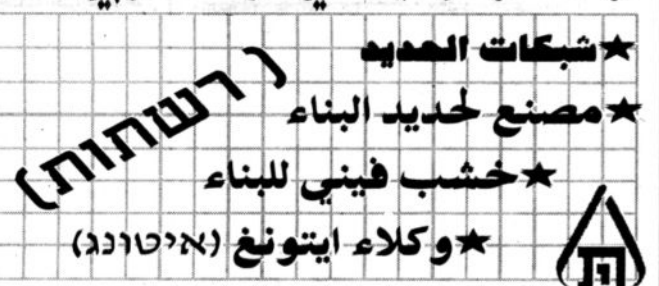 ★شبكات الحديد
(רשתות)
★مصنع لحديد البناء
★خشب فيني للبناء
★وكلاء ايتونغ (איטונג)